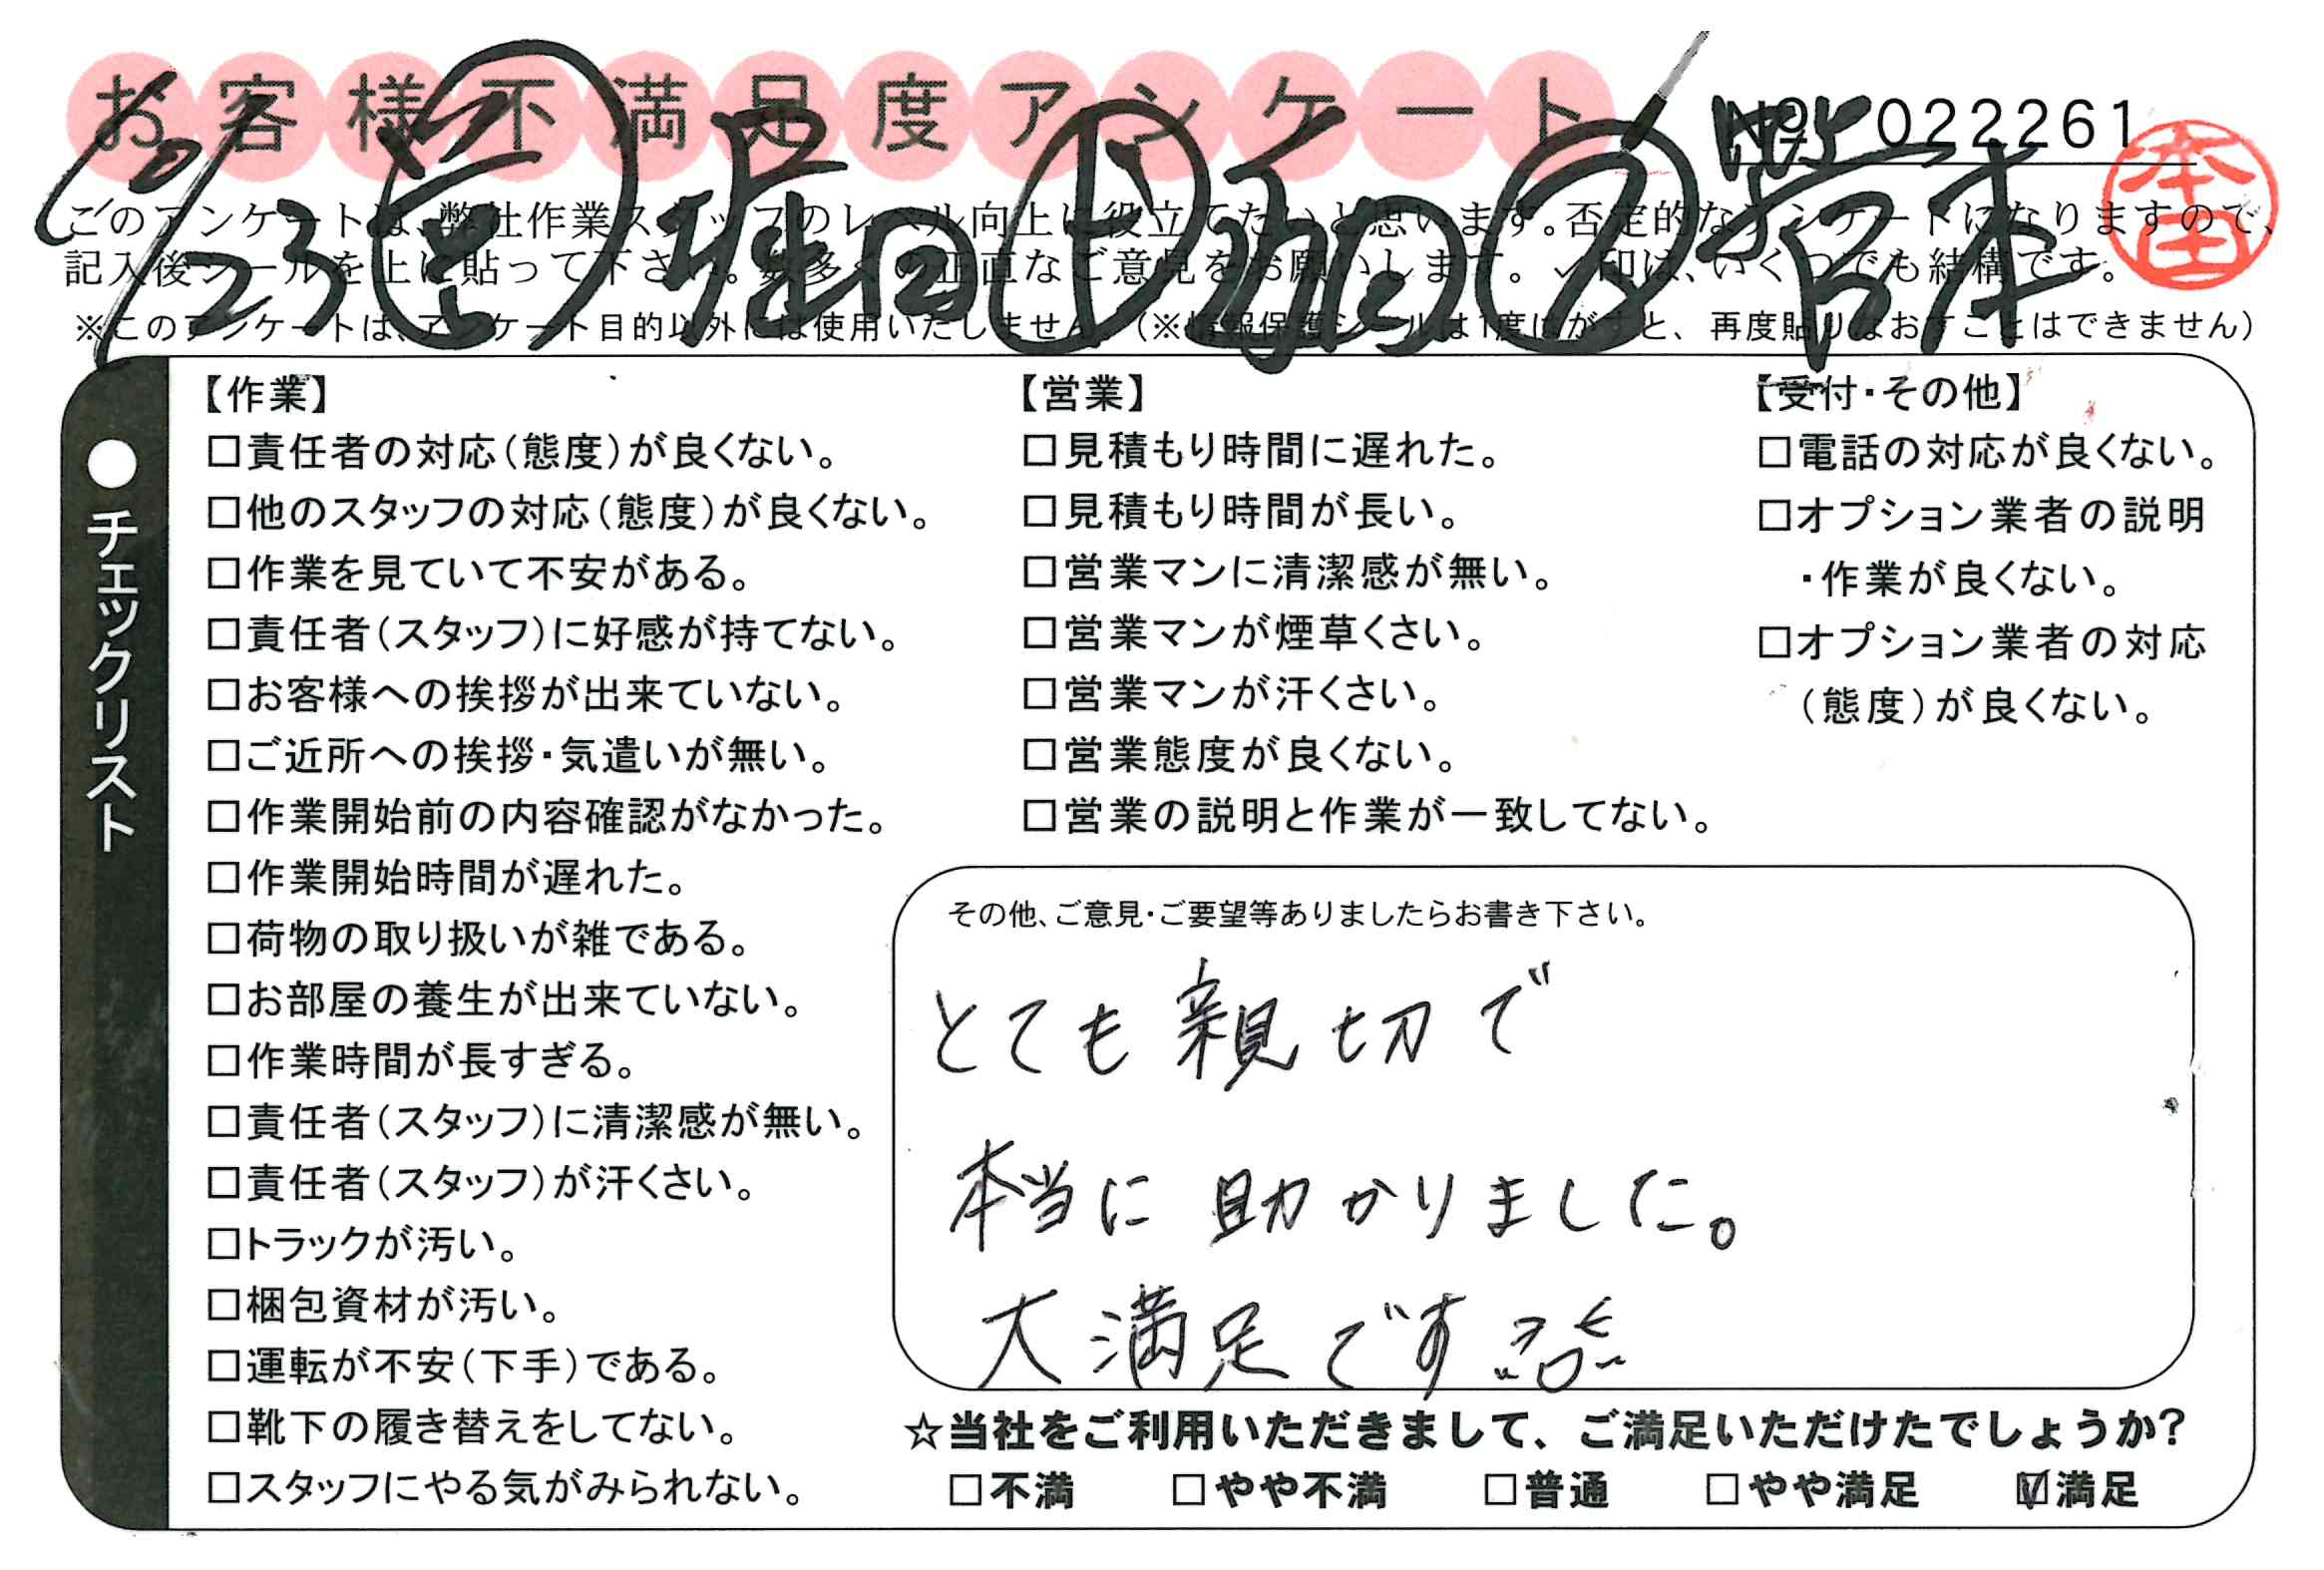 お客様不満足度アンケート
№ 022261
本田
このアンケートは、弊社作業スタッフのレベル向上に役立てたいと思います。否定的なアンケートになりますので、
記入後シールを上に貼って下さい。数多くの正直なご意見をお願いします。✓印は、いくつでも結構です。
※このアンケートは、アンケート目的以外には使用いたしません。(※情報保護シールは1度はがすと、再度貼りなおすことはできません)
●チェックリスト
【作業】
□責任者の対応(態度)が良くない。
□他のスタッフの対応(態度)が良くない。
□作業を見ていて不安がある。
□責任者(スタッフ)に好感が持てない。
□お客様への挨拶が出来ていない。
□ご近所への挨拶・気遣いが無い。
□作業開始前の内容確認がなかった。
□作業開始時間が遅れた。
□荷物の取り扱いが雑である。
□お部屋の養生が出来ていない。
□作業時間が長すぎる。
□責任者(スタッフ)に清潔感が無い。
□責任者(スタッフ)が汗くさい。
□トラックが汚い。
□梱包資材が汚い。
□運転が不安(下手)である。
□靴下の履き替えをしてない。
□スタッフにやる気がみられない。
【営業】
□見積もり時間に遅れた。
□見積もり時間が長い。
□営業マンに清潔感が無い。
□営業マンが煙草くさい。
□営業マンが汗くさい。
□営業態度が良くない。
□営業の説明と作業が一致してない。
【受付・その他】
□電話の対応が良くない。
□オプション業者の説明
・作業が良くない。
□オプション業者の対応
(態度)が良くない。
その他、ご意見・ご要望等ありましたらお書き下さい。
とても親切で
本当に助かりました。
大満足です
☆当社をご利用いただきまして、ご満足いただけたでしょうか?
□不満 □やや不満 □普通 □やや満足 ☑満足